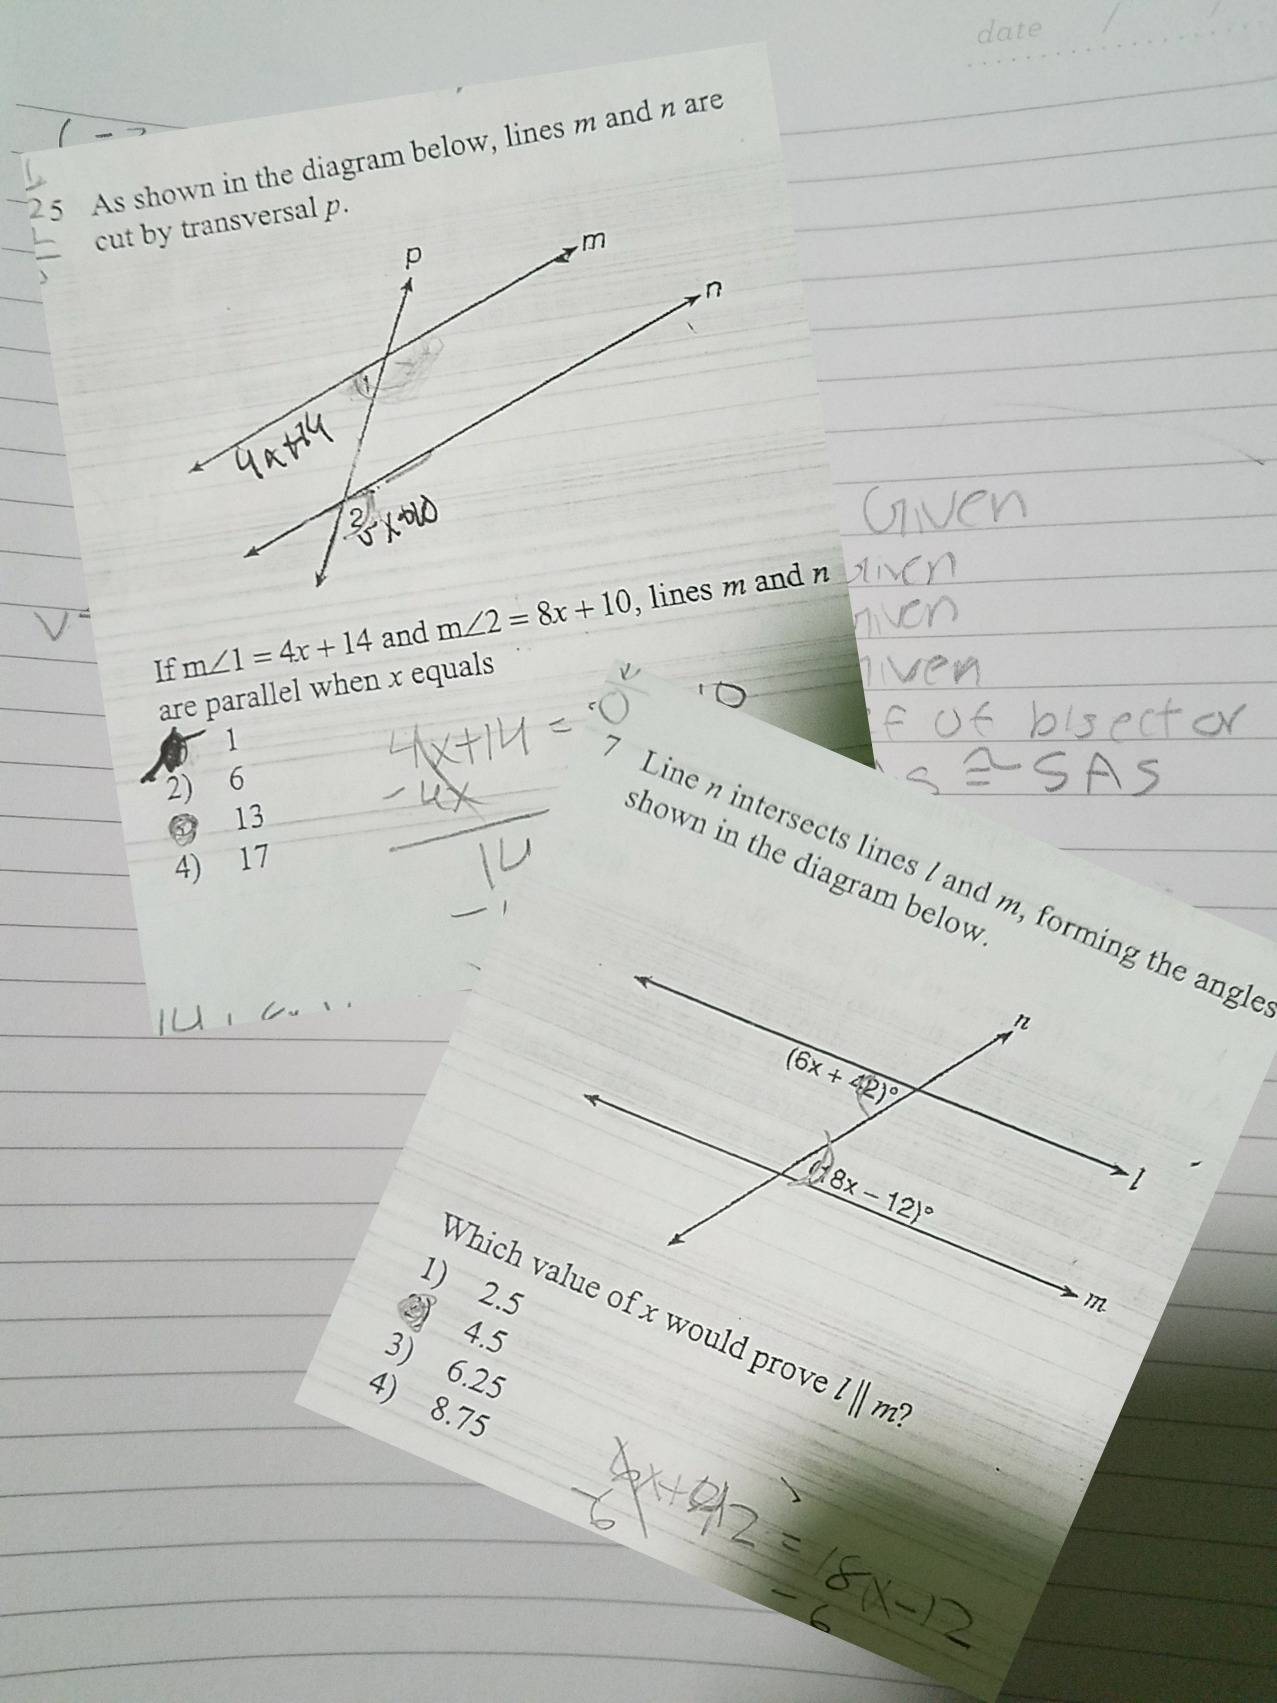 date / /
25 As shown in the diagram below, lines m and n are
cut by transversal p.
p
m
n
1
4x+14
2
If m∠1 = 4x + 14 and m∠2 = 8x + 10, lines m and n
are parallel when x equals
1
2) 6
13
4) 17
4x+14 =
-4x
14
Given
Given
of bisector
≅ SAS
7 Line n intersects lines l and m, forming the angles
shown in the diagram below.
n
(6x + 42)°
(18x − 12)°
l
m
Which value of x would prove l || m?
1) 2.5
4.5
3) 6.25
4) 8.75
6x+42 = 18x-12
-6 -6